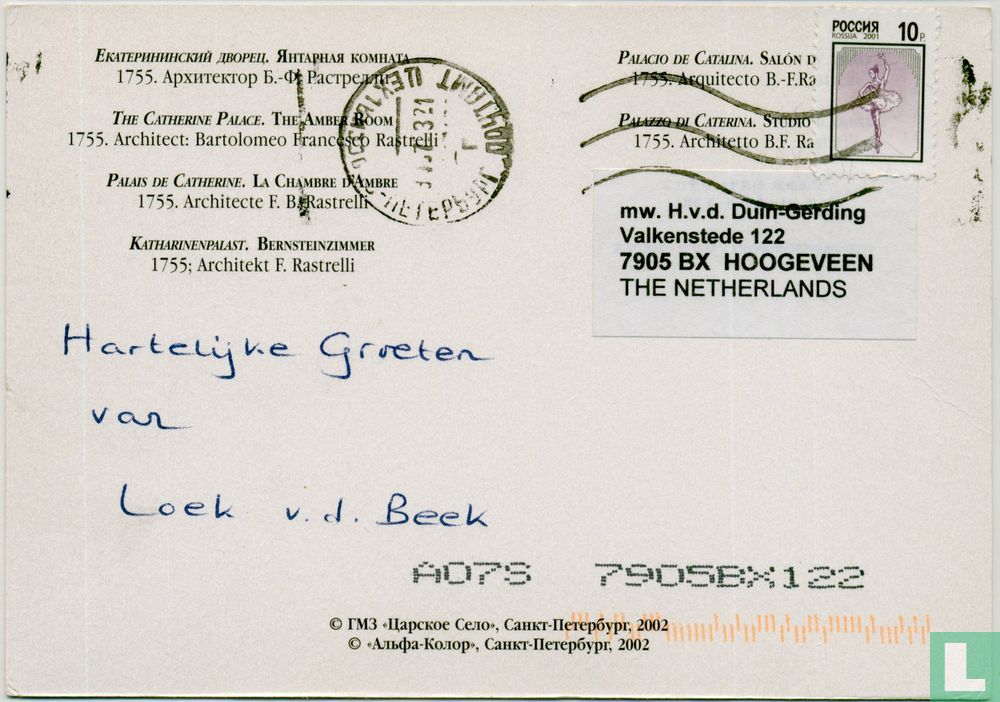 Екатерининский дворец. Янтарная комната
1755. Архитектор Б.-Ф. Растрелли
The Catherine Palace. The Amber Room
1755. Architect: Bartolomeo Francesco Rastrelli
Palais de Catherine. La Chambre d'Ambre
1755. Architecte F. B. Rastrelli
Katharinenpalast. Bernsteinzimmer
1755; Architekt F. Rastrelli
Palacio de Catalina. Salón d
1755. Arquitecto B.-F.Ra
Palazzo di Caterina. Studio
1755. Architetto B.F. Ra
РОССИЯ 10 р
ROSSIJA 2001
ПОЧТАМТ
С-ПЕТЕРБУРГ
mw. H.v.d. Duin-Gerding
Valkenstede 122
7905 BX HOOGEVEEN
THE NETHERLANDS
Hartelijke Groeten
van
Loek v.d. Beek
A07S 7905BX122
© ГМЗ «Царское Село», Санкт-Петербург, 2002
© «Альфа-Колор», Санкт-Петербург, 2002
L